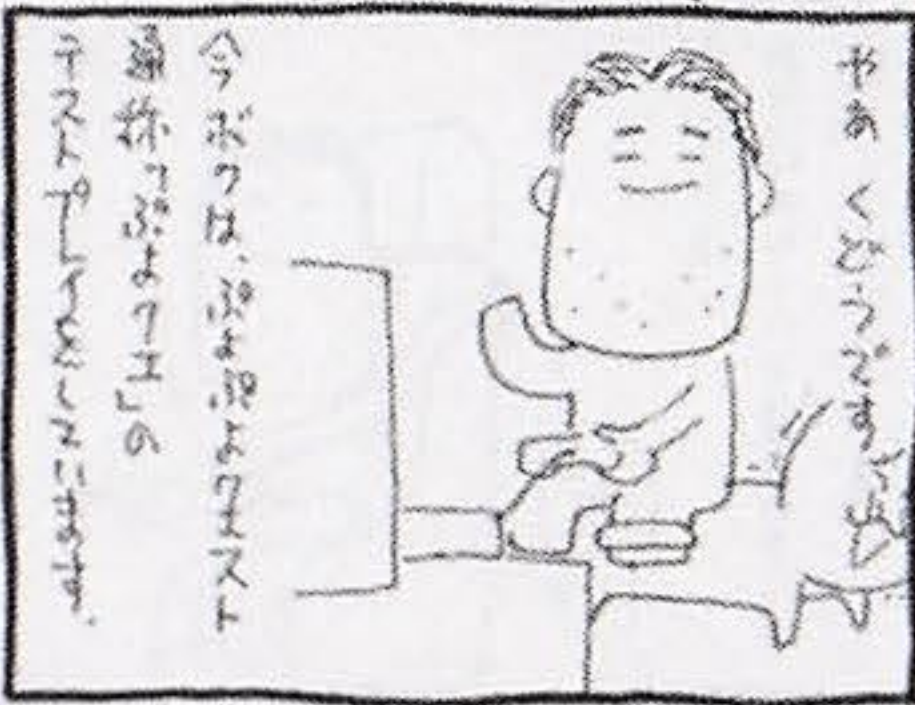 やあ くどうです
今ボクは、ぷよぷよクエスト
通称「ぷよクエ」の
テストプレイをしています。